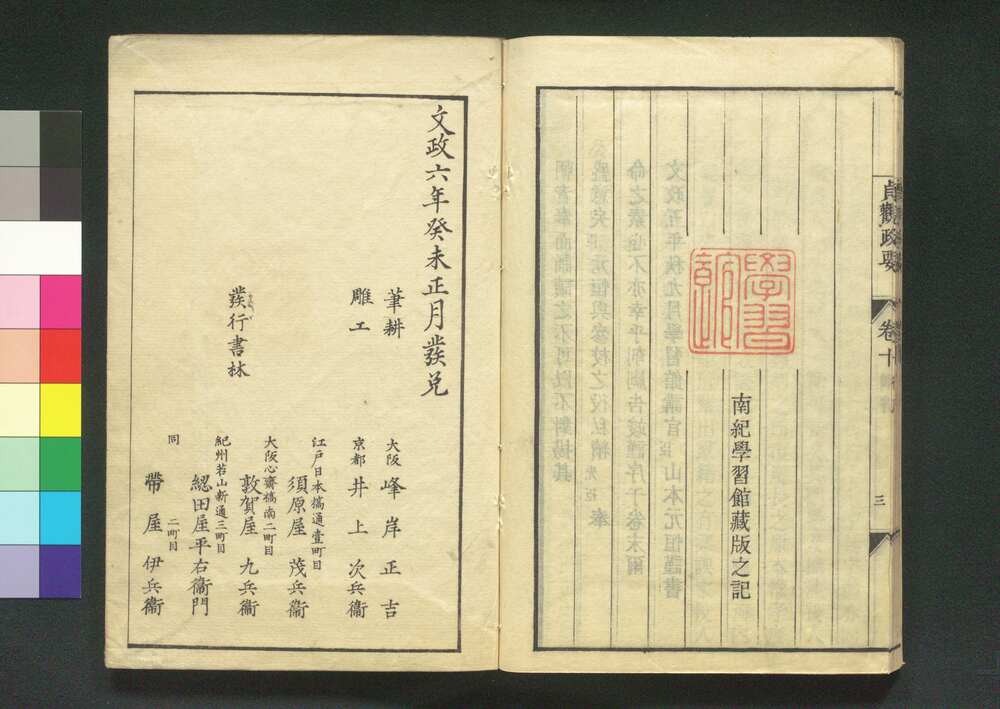 貞觀政要 卷十 三
學習
南紀學習館藏版之記
文政六年癸未正月發兌
筆耕 大阪 峰岸正吉
雕工 京都 井上次兵衞
發行書林
江戸日本橋通壹町目
須原屋茂兵衞
大阪心齋橋南二町目
敦賀屋九兵衞
紀州若山新通三町目
綛田屋平右衞門
同 二町目
帶屋伊兵衞